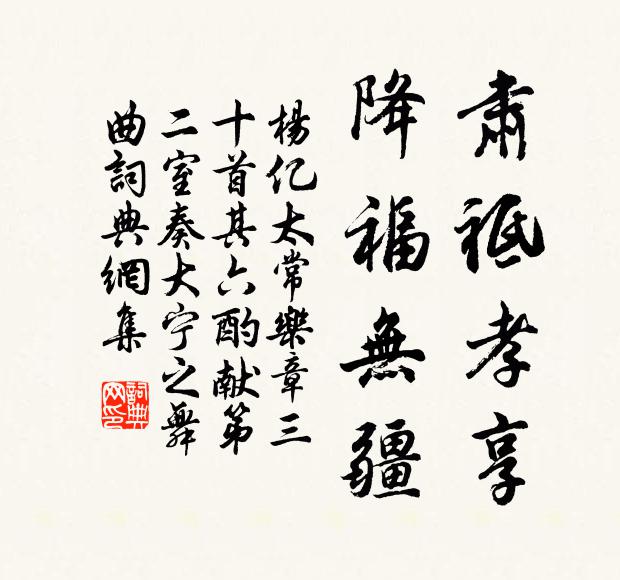 肅祗孝享
降福無疆
楊亿太常樂章三
十首其六酌献第
二室奏大宁之舞
曲詞典網集
詞典
网印